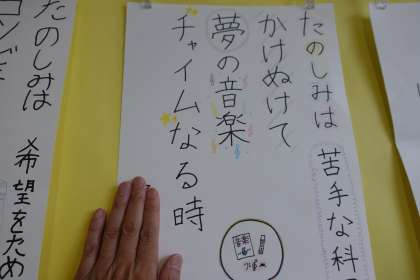 たのしみは
苦手な科
かけぬけて
夢の音楽
チャイムなる時
たのしみは
希望をため